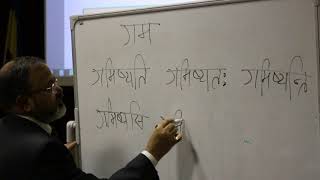 गम
गमिष्यति गमिष्यतः गमिष्यन्ति
गमिष्यसि